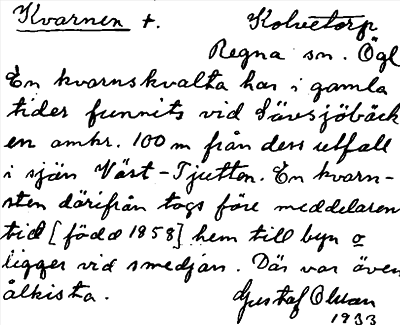 Kvarnen †. Kolvetorp
Regna sn. Ögl
En kvarnskvalta har i gamla
tider funnits vid Sävsjöbäck
en omkr. 100 m från dess utfall
i sjön Väst-Tjutten. En kvarn-
sten därifrån togs före meddelaren
tid [född 1858] hem till byn o
ligger vid smedjan. Där var även
ålkista. Gustaf Olsson
1933